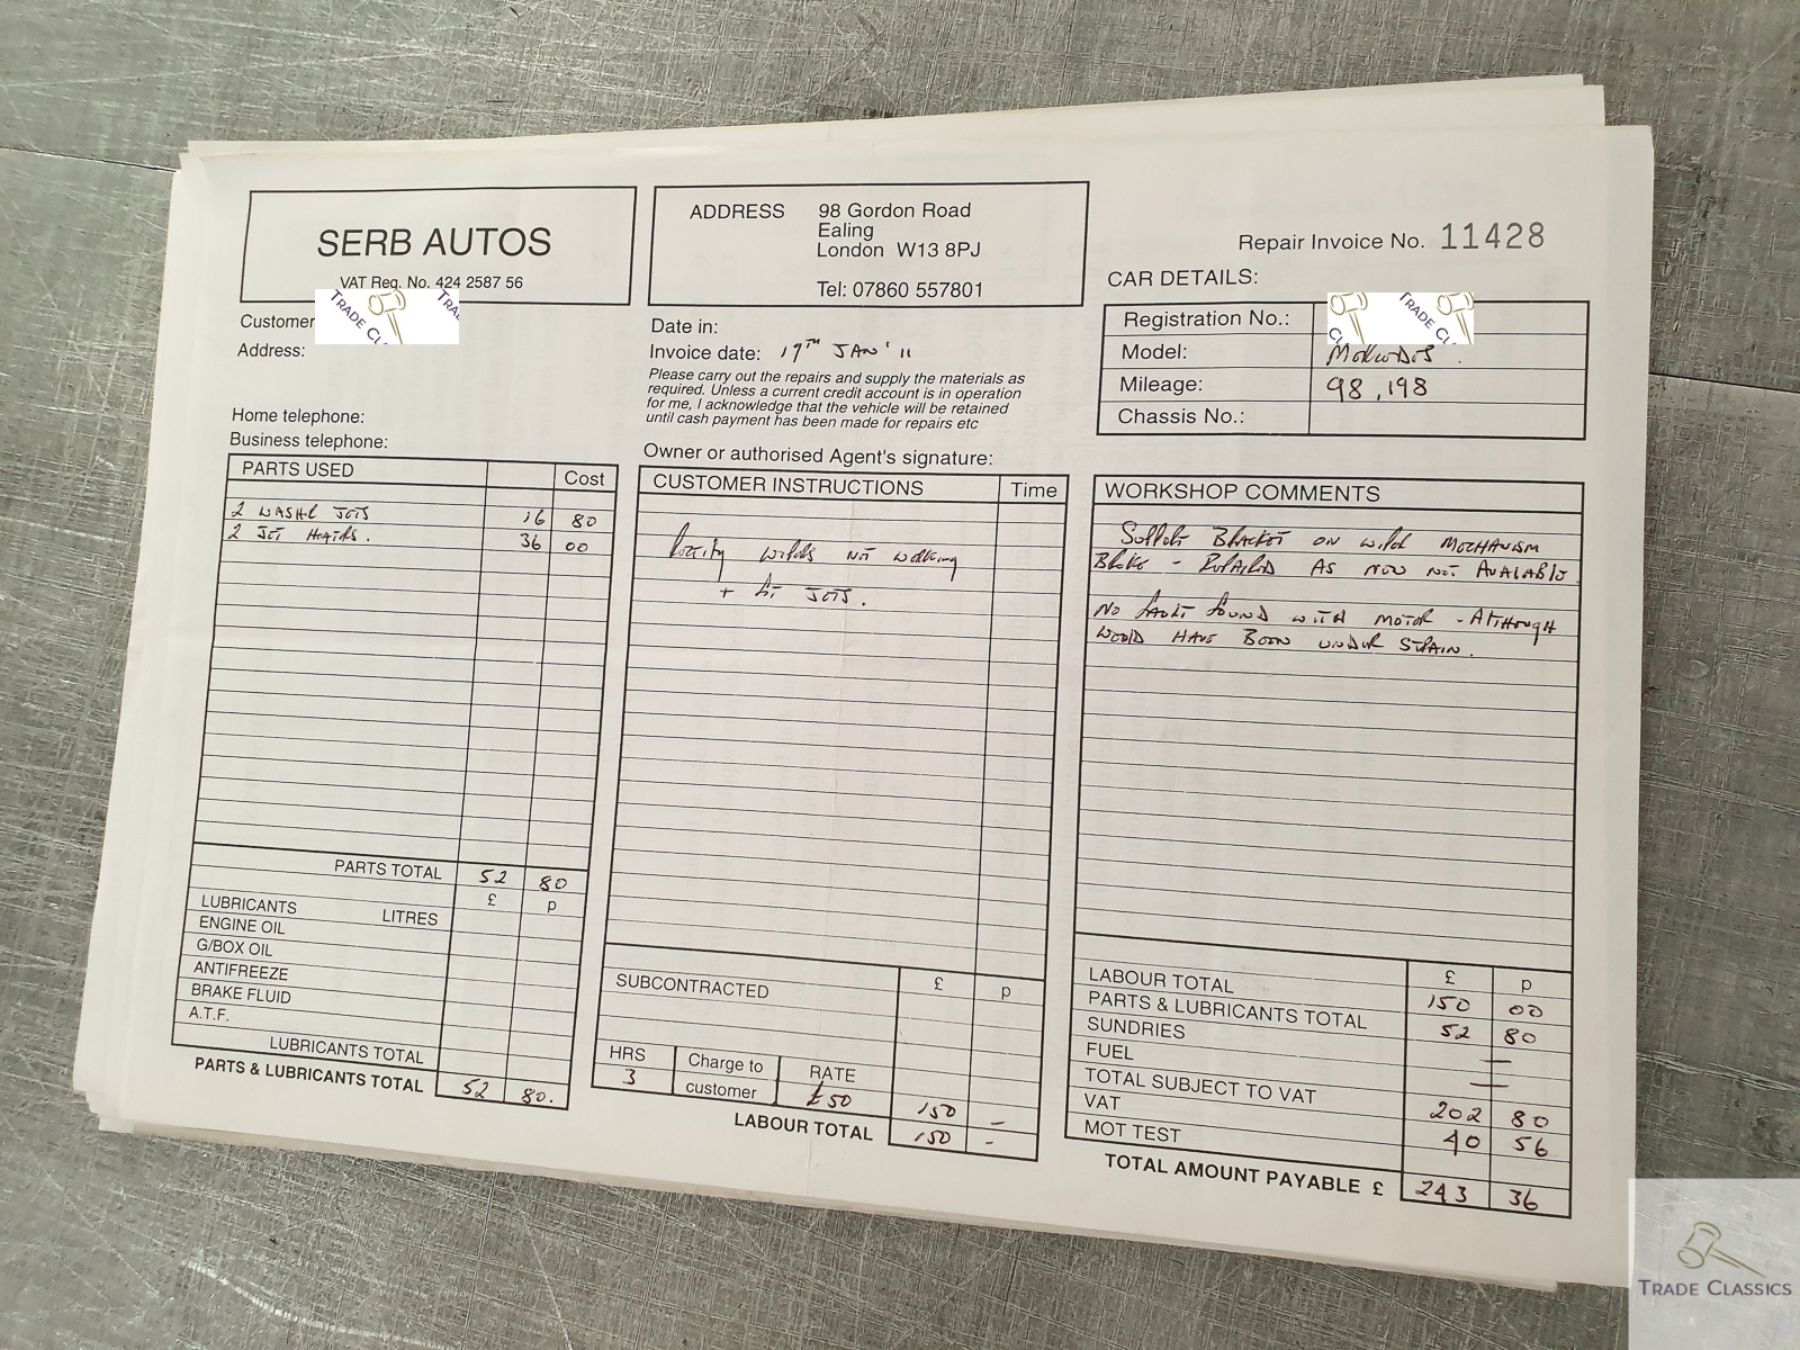 SERB AUTOS
VAT Reg. No. 424 2587 56
ADDRESS 98 Gordon Road
Ealing
London W13 8PJ
Tel: 07860 557801
Repair Invoice No. 11428
CAR DETAILS:
Registration No.:
Model:
Mileage: 98,198
Chassis No.:
Customer
Address:
Home telephone:
Business telephone:
Date in:
Invoice date: 19TH JAN' 11
Please carry out the repairs and supply the materials as
required. Unless a current credit account is in operation
for me, I acknowledge that the vehicle will be retained
until cash payment has been made for repairs etc
Owner or authorised Agent's signature:
PARTS USED Cost
2 JETS 16 80
2 JET 36 00
PARTS TOTAL 52 80
£ p
LUBRICANTS LITRES
ENGINE OIL
G/BOX OIL
ANTIFREEZE
BRAKE FLUID
A.T.F.
LUBRICANTS TOTAL
PARTS & LUBRICANTS TOTAL 52 80.
CUSTOMER INSTRUCTIONS Time
NOT working
+ JETS.
SUBCONTRACTED £ p
HRS Charge to RATE
3 customer £50 150 –
LABOUR TOTAL 150 -
WORKSHOP COMMENTS
BRACKET ON MECHANISM
BROKE - REPAIRED AS NOW NOT AVAILABLE
NO FAULT FOUND WITH MOTOR - ALTHOUGH
WOULD HAVE BEEN UNDER STRAIN.
£ p
LABOUR TOTAL 150 00
PARTS & LUBRICANTS TOTAL 52 80
SUNDRIES —
FUEL —
TOTAL SUBJECT TO VAT 202 80
VAT 40 56
MOT TEST
TOTAL AMOUNT PAYABLE £ 243 36
TRADE CLASSICS